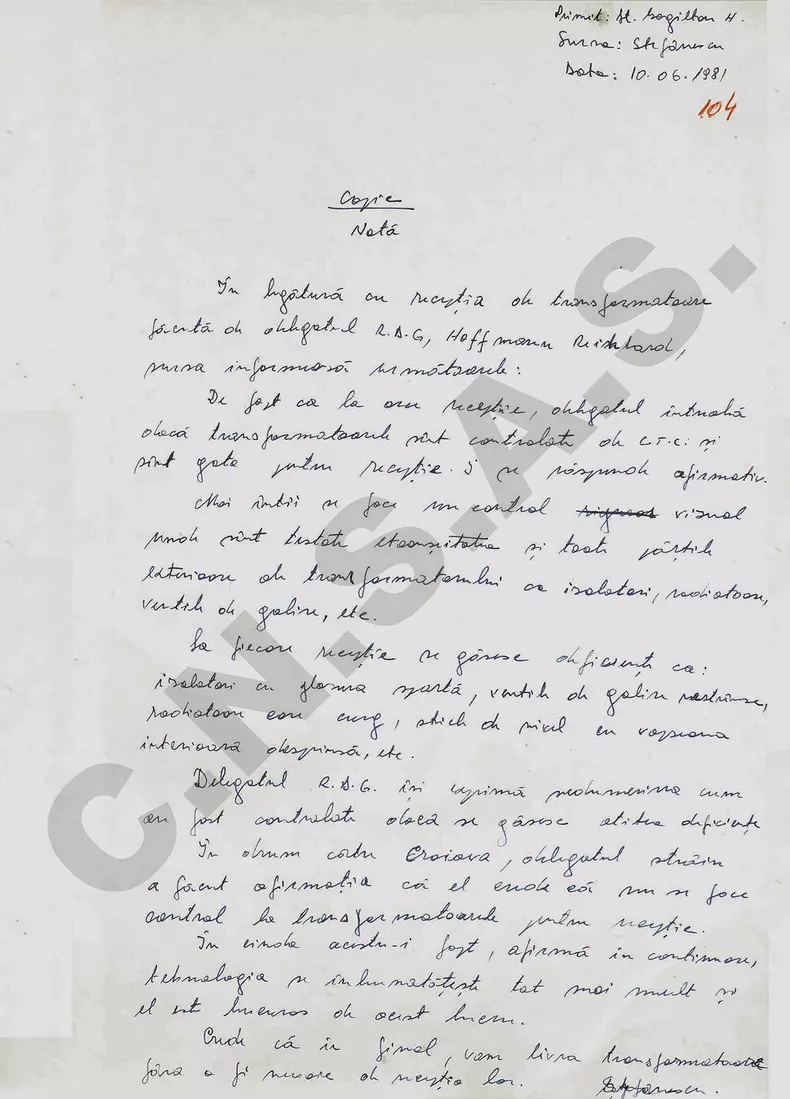 Primit: Lt. Gogiltan H.
Sursa: Stefănescu
Data: 10.06.1981
104
Copie
Notă
În legătură cu recepția de transformatoare
făcută de delegatul R.D.G, Hoffmann Reinhard,
sursa informează următoarele:
De fapt ca la orice recepție, delegatul întreabă
dacă transformatoarele sînt controlate de C.T.C. și
sînt gata pentru recepție. I se răspunde afirmativ.
Mai întîi se face un control riguros vizual
unde sînt testate etanșeitatea și toate părțile
exterioare de transformatorului ca izolatori, radiatoare,
ventile de golire, etc.
La fiecare recepție se găsesc deficiențe ca:
izolatori cu glasura spartă, ventile de golire nestrînse,
radiatoare care curg, sticle de nivel cu vopseaua
interioară desprinsă, etc.
Delegatul R.D.G. își exprimă nedumerirea cum
au fost controlate dacă se găsesc atîtea deficiențe
În drum către Craiova, delegatul străin
a făcut afirmația că el crede că nu se face
control la transformatoarele pentru recepție.
În ciuda acestu-i fapt, afirmă în continuare,
tehnologia se înbunătățește tot mai mult și
el este bucuros de acest lucru.
Crede că în final, vom livra transformatoare
făra a fi nevoie de recepția lor. Ștefănescu.
C.N.S.A.S.